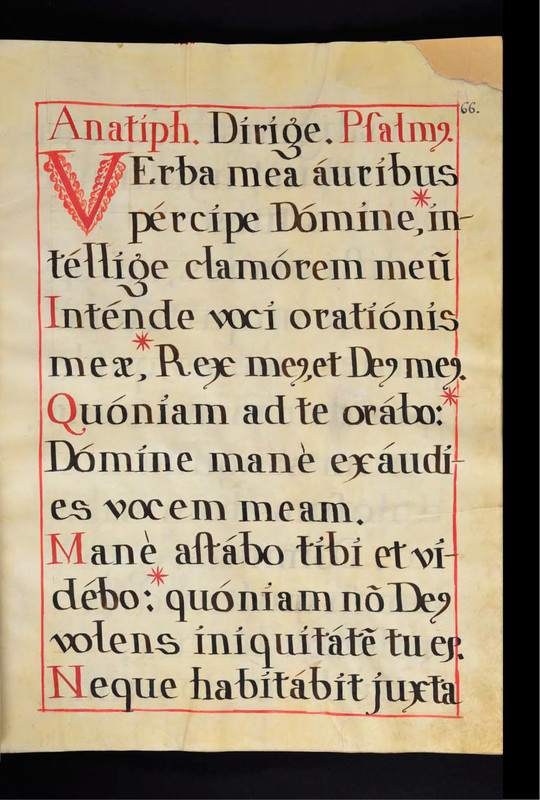 66.
Anatiph. Dirige. Psalmꝯ.
VErba meā áuribus
pércipe Dómine,* in-
téllige clamórem meũ
Inténde voci oratiónis
meæ,* Rex meꝯ, et Deꝯ meꝯ.
Quóniam ad te orábo:*
Dómine manè exáudi-
es vocem meam.
Manè aſtábo tibi et vi-
débo:* quóniam nõ Deꝯ
volens iniquitátẽ tu es.
Neque habitábit juxta